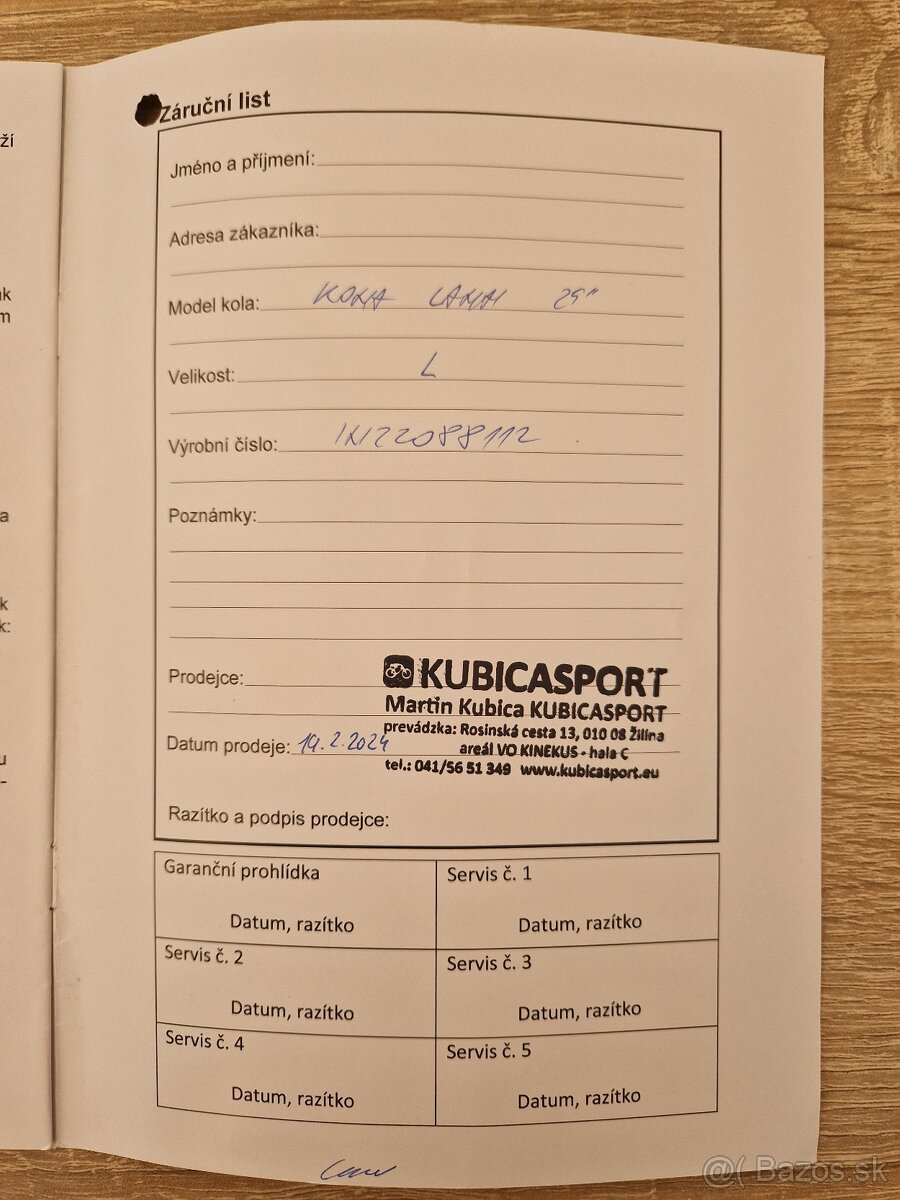 ží
ak
m
a
k
k:
u
-
Záruční list
Jméno a příjmení:
Adresa zákazníka:
Model kola: KONA LANAI 29"
Velikost: L
Výrobní číslo: IN22088112
Poznámky:
Prodejce:
KUBICASPORT
Martin Kubica KUBICASPORT
prevádzka: Rosinská cesta 13, 010 08 Žilina
Datum prodeje: 19.2.2024
areál VO KINEKUS - hala C
tel.: 041/56 51 349 www.kubicasport.eu
Razítko a podpis prodejce:
Garanční prohlídka
Datum, razítko
Servis č. 1
Datum, razítko
Servis č. 2
Datum, razítko
Servis č. 3
Datum, razítko
Servis č. 4
Datum, razítko
Servis č. 5
Datum, razítko
@( Bazos.sk